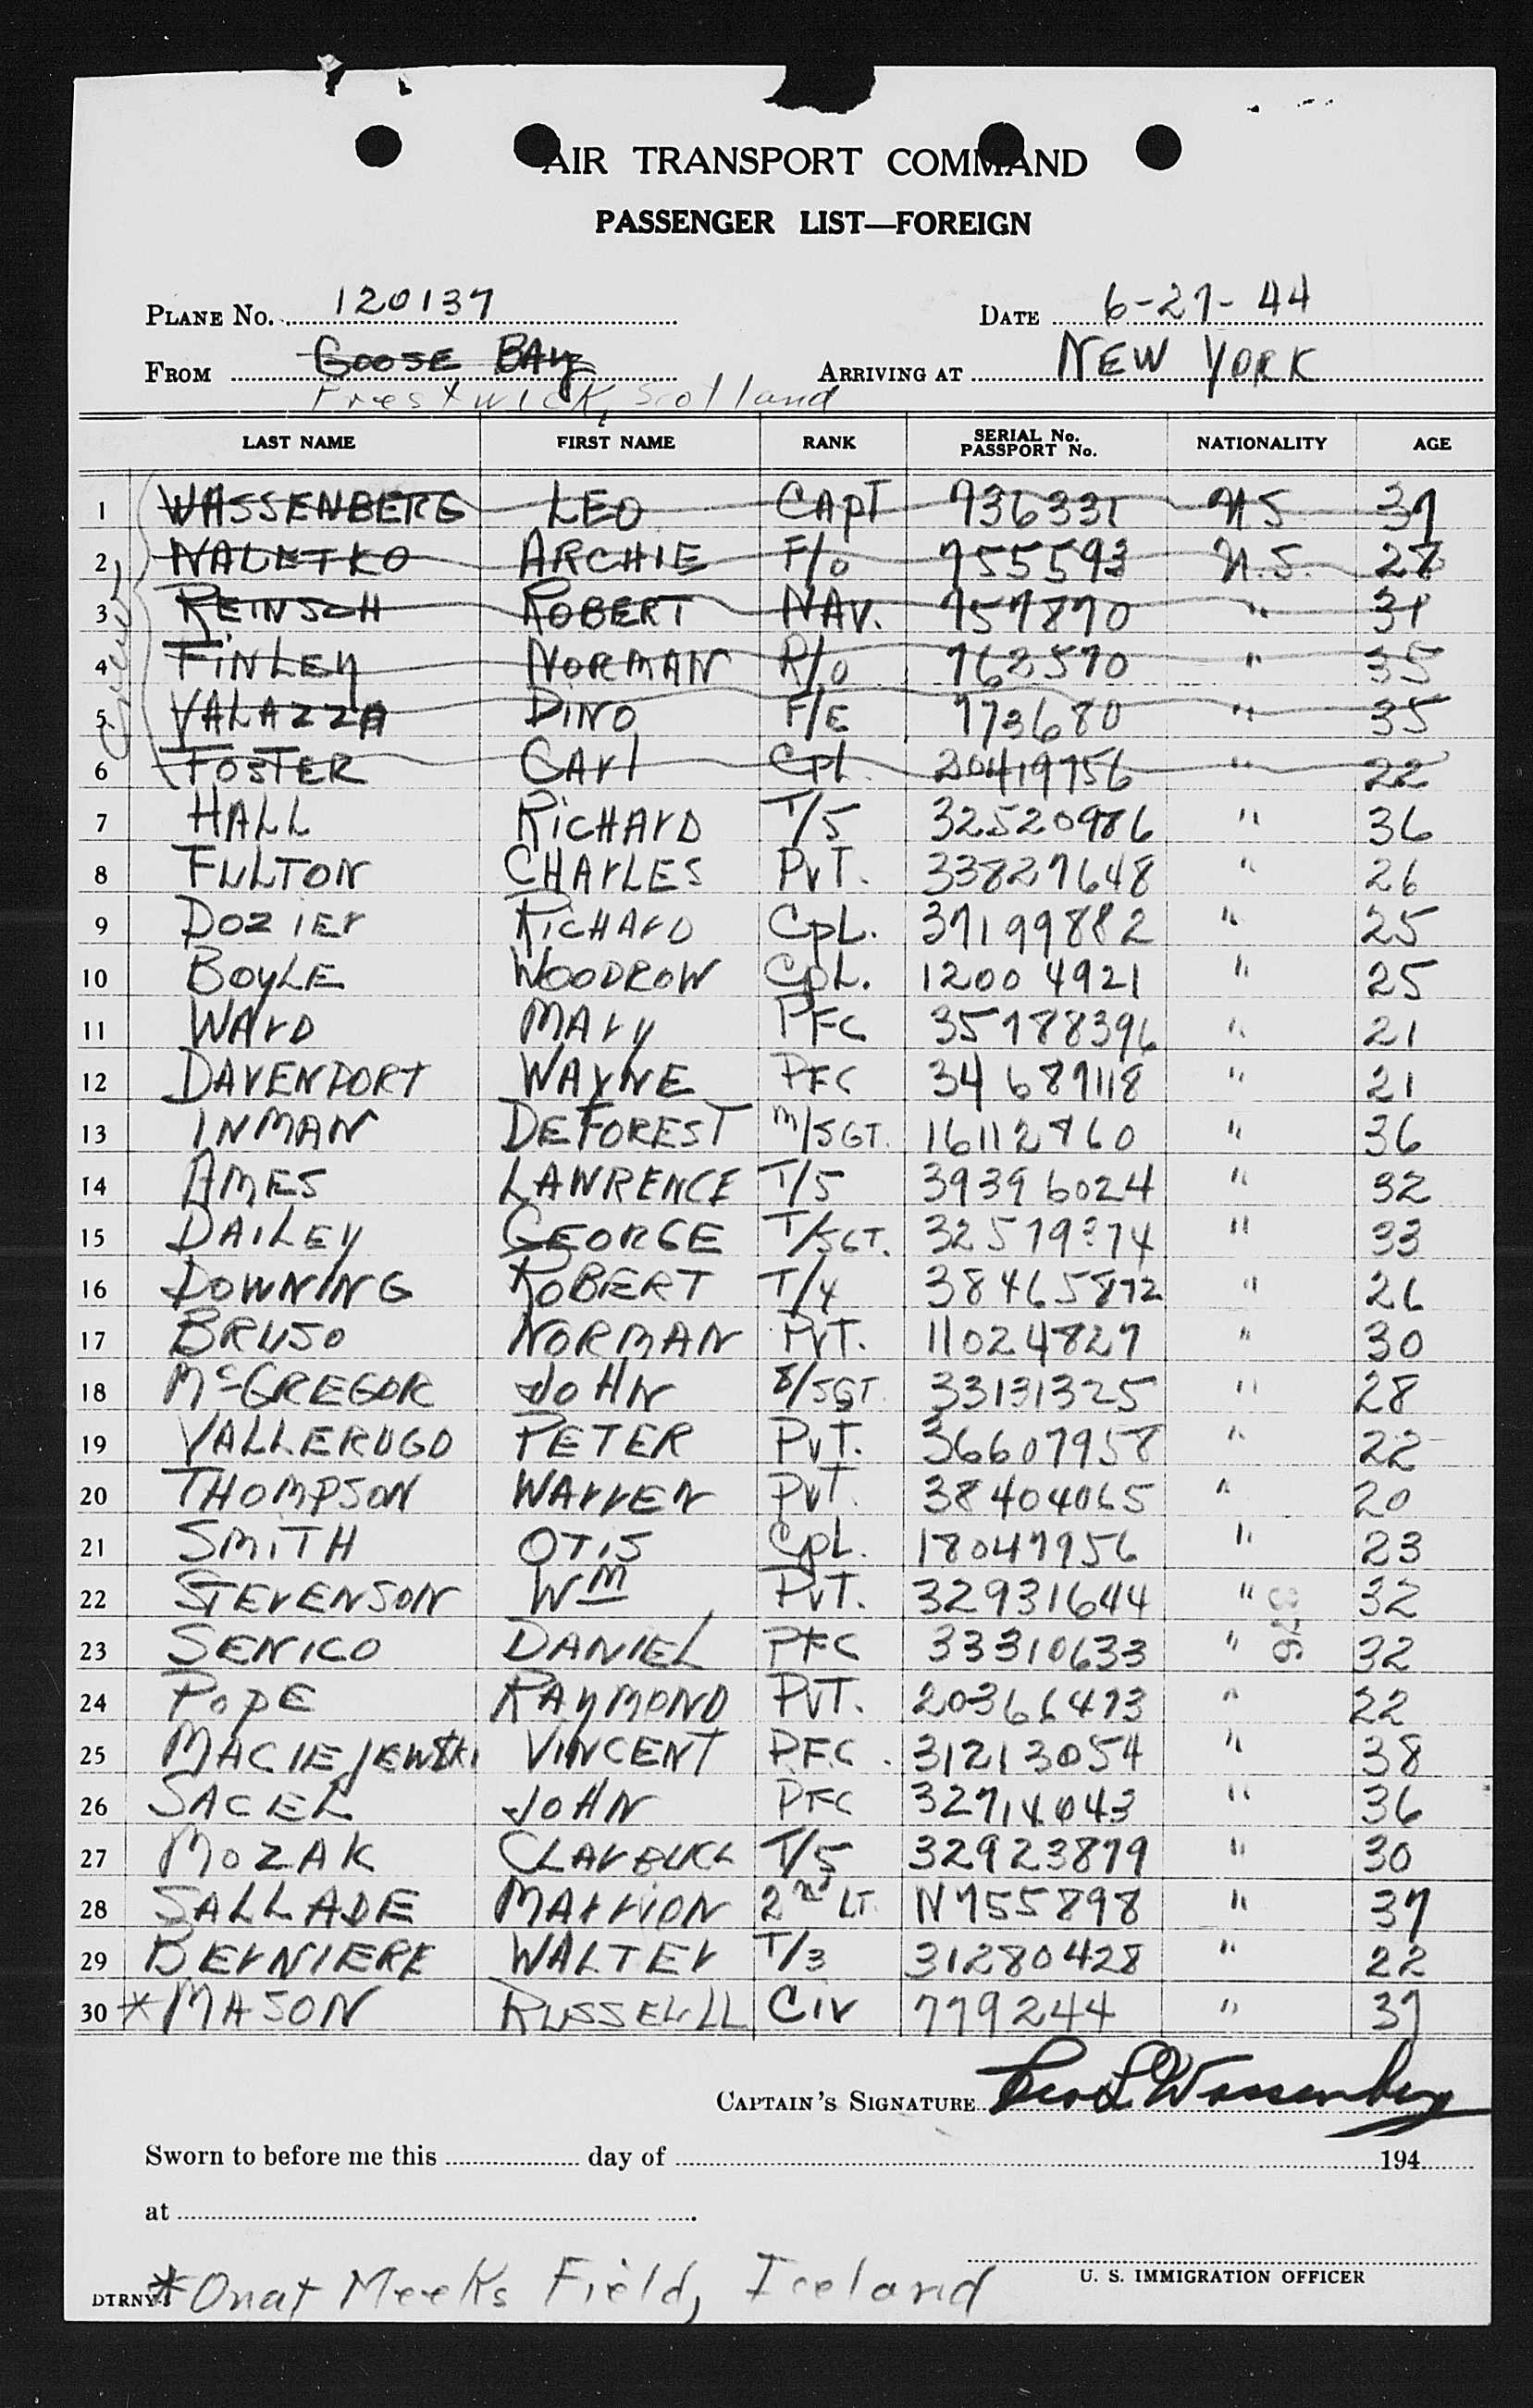 AIR TRANSPORT COMMAND
PASSENGER LIST—FOREIGN
PLANE No. 120137 DATE 6-27-44
FROM GOOSE BAy ARRIVING AT NEW YORK
Prestwick, Scotland
LAST NAME FIRST NAME RANK SERIAL No. PASSPORT No. NATIONALITY AGE
Crew
1 WASSENBERG LEO CAPT 736331 U.S. 37
2 NALETKO ARCHIE F/O 755593 U.S. 28
3 REINSCH ROBERT NAV. 757870 " 31
4 FINLEY NORMAN R/O 763570 " 35
5 VALAZZA DINO F/E 773680 " 35
6 FOSTER CArl Cpl. 20419756 " 22
7 HALL RICHArD T/5 32520986 " 36
8 FULTON CHArLES PvT. 33827648 " 26
9 DOZIEr RICHArD CpL. 37199882 " 25
10 BOyLE WOODROW CpL. 12004921 " 25
11 WArD MAry PFC 35788396 " 21
12 DAVENPORT WAYNE PFC 34689118 " 21
13 INMAN DEFOREST M/SGT. 16112860 " 36
14 AMES LAWRENCE T/5 39396024 " 32
15 DAILEY GEORGE T/SGT. 32579274 " 33
16 DOWNING ROBERT T/4 38465872 " 26
17 BRUSO NORMAN PvT. 11024827 " 30
18 McGREGOR JOHN S/SGT. 33131325 " 28
19 VALLERUGO PETER PvT. 36607958 " 22
20 THOMPSON WArrEN PvT. 38404065 " 20
21 SMITH OTIS CpL. 18047956 " 23
22 STEVENSON WM PvT. 32931644 " 32
23 SENICO DANIEL PFC 33310633 " 32
24 POpE RAyMOND PvT. 20366473 " 22
25 MACIEJEWSKI VINCENT PFC. 31213054 " 38
26 SACEL JOHN PFC 32714043 " 36
27 MOZAK T/5 32923879 " 30
28 SALLADE MArrION 2nd LT. N755898 " 37
29 BErNIERE WALTEr T/3 31280428 " 22
30 * MASON RUSSELLL CIV 779244 " 37
CAPTAIN'S SIGNATURE Leo L Wassenberg
Sworn to before me this day of 194
at
U. S. IMMIGRATION OFFICER
DTRNY
* On at Meeks Field, Iceland